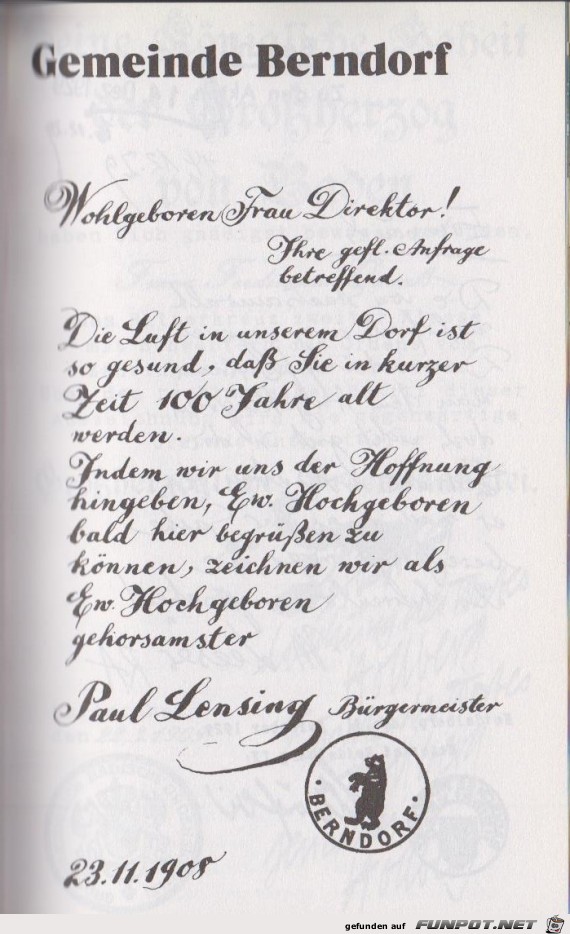 Gemeinde Berndorf
Wohlgeboren Frau Direktor!
Ihre gefl. Anfrage
betreffend.
Die Luft in unserem Dorf ist
so gesund, daß Sie in kurzer
Zeit 100 Jahre alt
werden.
Indem wir uns der Hoffnung
hingeben, Ew. Hochgeboren
bald hier begrüßen zu
können, zeichnen wir als
Ew. Hochgeboren
gehorsamster
Paul Lensing Bürgermeister
· BERNDORF ·
23.11.1908
gefunden auf FUNPOT.NET